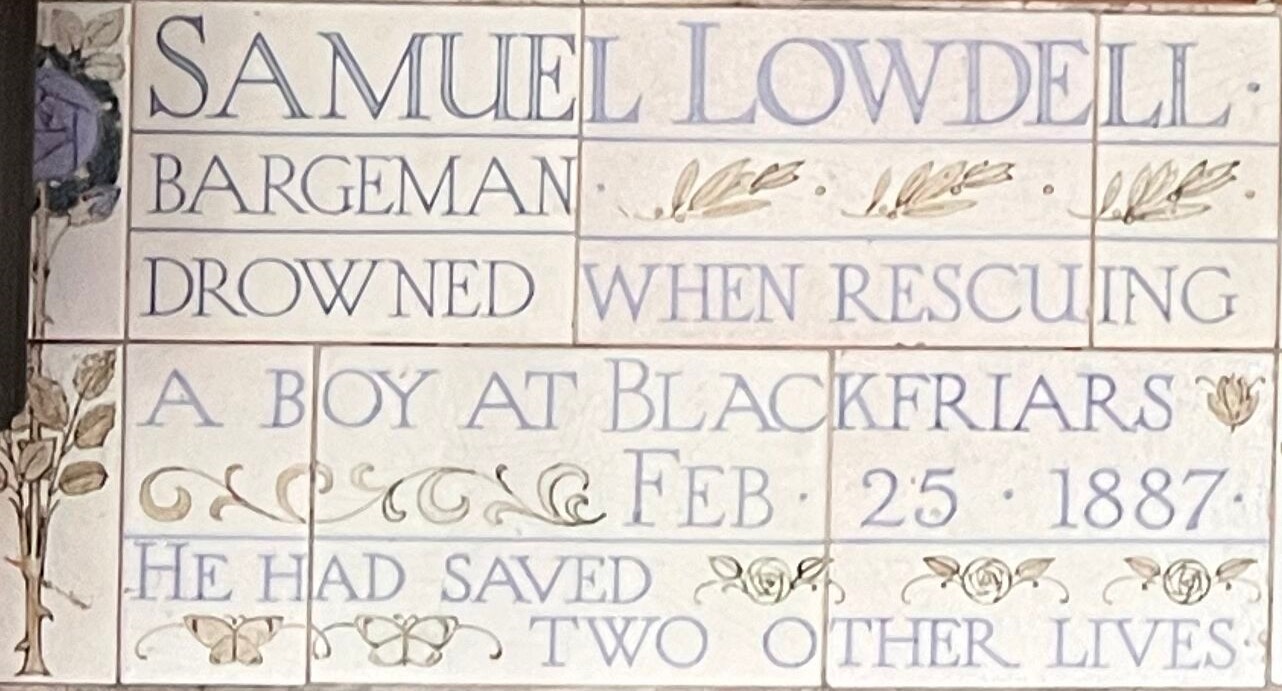 SAMUEL LOWDELL ·
BARGEMAN ·
DROWNED WHEN RESCUING
A BOY AT BLACKFRIARS
FEB · 25 · 1887 ·
HE HAD SAVED
TWO OTHER LIVES ·